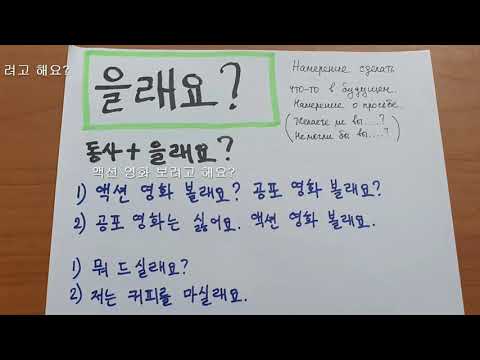 려고 해요?
을래요?
Намерение сделать
что-то в будущем.
Намерение о просьбе.
(Желаете ли вы....?
Не могли бы вы....?)
동사 + 을래요?
액션 영화 보려고 해요?
1) 액션 영화 볼래요? 공포 영화 볼래요?
2) 공포 영화는 싫어요. 액션 영화 볼래요.
1) 뭐 드실래요?
2) 저는 커피를 마실래요.